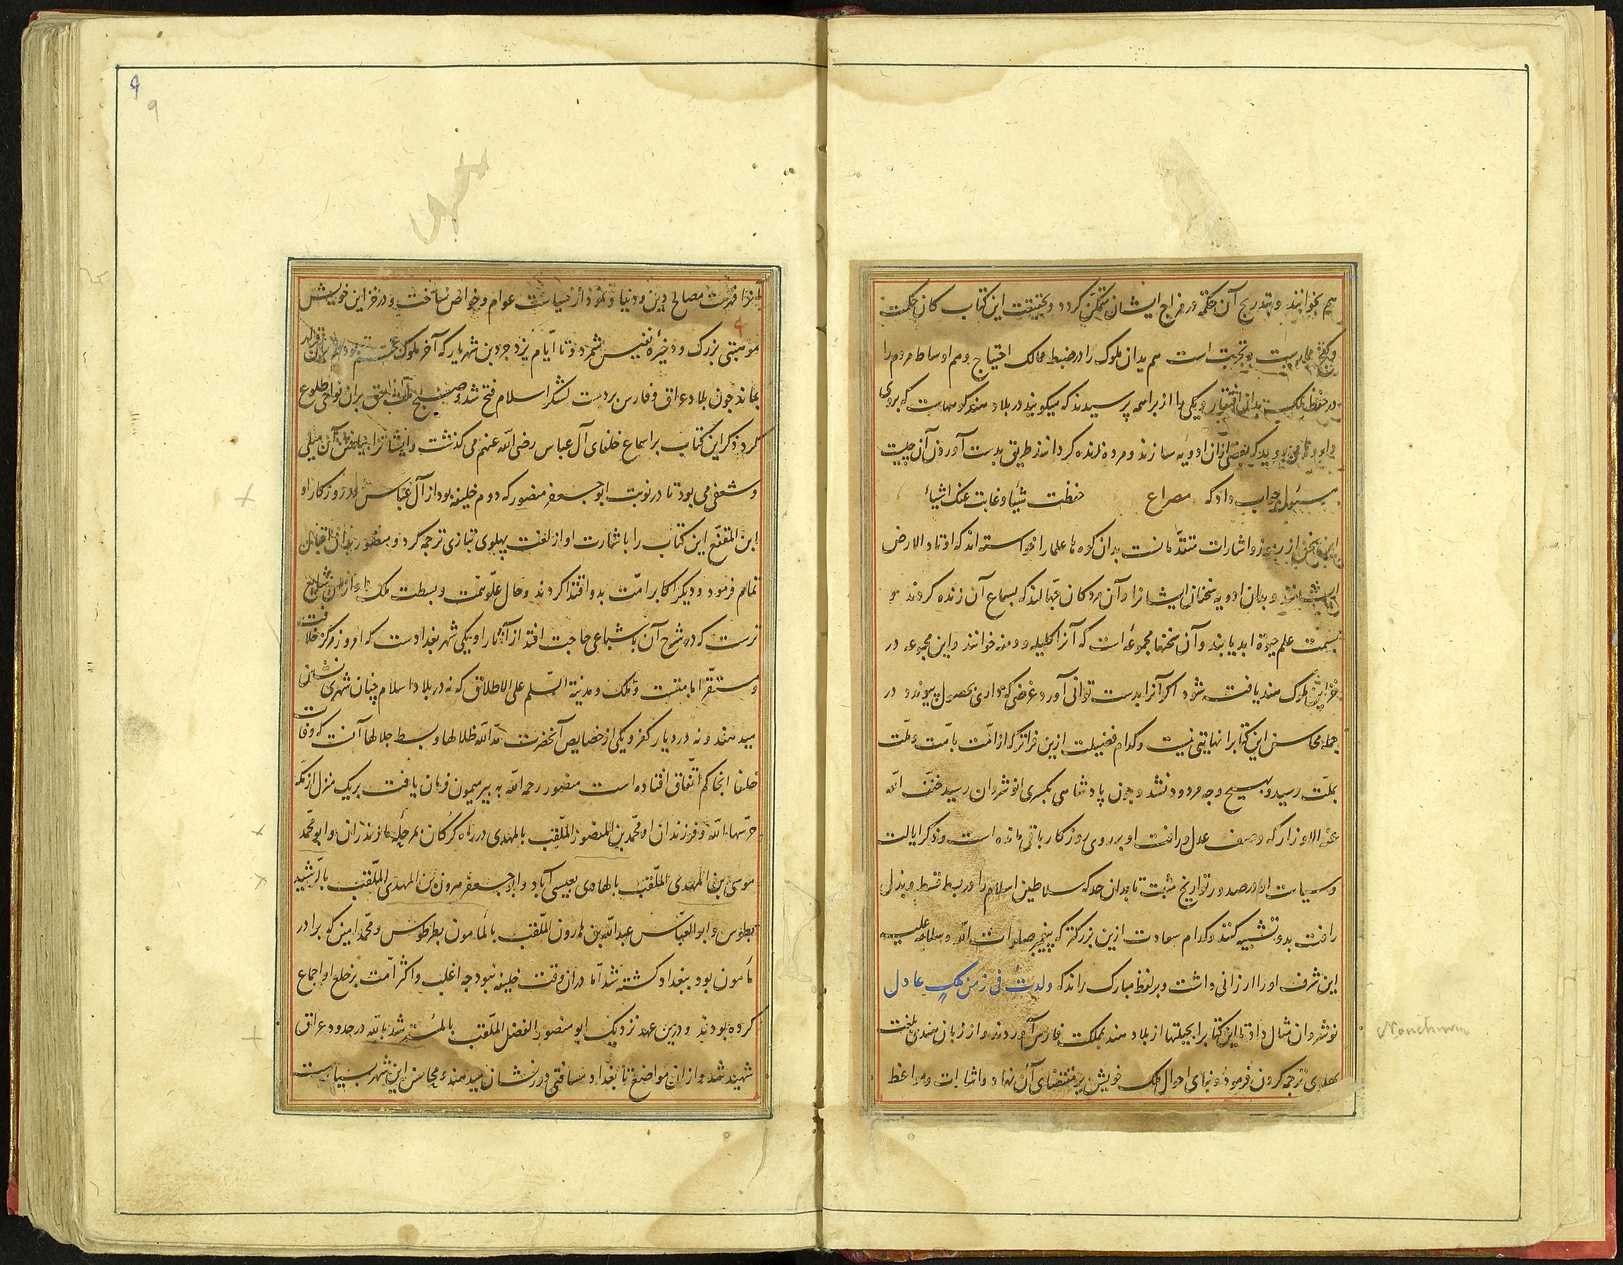 هم بخوانند و بتدریج آن حکمة در مزاج ایشان متمکن گردد و بحقیقت این کتاب کان حکمت
و گنج تجربت است هم بدان ملوک را در ضبط ممالک احتیاج و هم اوساط مردم را
در حفظ ملک و یکی را از براهمه پرسیدند که میگویند در بلاد هند کوههاست که بروی
داروها می روید که بعضی ازان ادویه سازند و مرده زنده گردانند طریق بدست آوردن آن چیست
جواب داد که مصراع حفظت شیئا و غابت عنک اشیاء
این سخن از رموز و اشارات متقدمانست بدان کوه‌ها علما را خواسته‌اند که اوتاد الارض
ایشانند و بدان ادویه سخنان ایشانرا و آن مردکان جهالند که بسماع آن زنده کردند و
بسمت علم حیوة ابد یابند و آن سخنها مجموعه‌ایست که آنرا کلیله و دمنه خوانند و این مجموعه در
خزاین ملوک هند یافت شود اکر آنرا بدست توانی آورد غرضی که داری بحصول پیوندد و در
جمله محاسن این کتابرا نهایتی نیست و کدام فضیلت ازین فراتر که از امت بامت و ملت
بملت رسید و بهیچ وجه مردود نشد و چون پادشاهی بکسری انوشروان رسید خفف الله
عنه الاوزار که وصف عدل و رافت او بر روی روزکار باقی مانده است و ذکر ایالت
و سیاست او در صدور تواریخ مثبت تا بدان حد که سلاطین اسلام را در بسط قسط و بذل
رافت بدو تشبیه کنند و کدام سعادت ازین بزرکتر که پیغمبر صلوات الله و سلامه علیه
این شرف او را ارزانی داشت و بر لفظ مبارک راند که ولدت فی زمن ملک عادل
نوشروان مثال داد تا این کتابرا بحیلتها از بلاد هند بمملکت فارس آوردند و از زبان هندی بلغت
پهلوی ترجمه کردن فرمود و بنای احوال ملک خویش بر مقتضای آن نهاد و اشارات و مواعظ
Nouchirvan
۹
9
انرا فهرست مصالح دین و دنیا و نمودار سیاست عوام و خواص ساخت و در خزاین خویش
موهبتی بزرک و ذخیره نفیس شمرد و تا ایام یزدجرد بن شهریار که آخر ملوک عجم بود
بماند چون بلاد عراق و فارس بر دست لشکر اسلام فتح شد و صبح ملت حق بران نواحی طلوع
کرد ذکر این کتاب بر اسماع خلفای آل عباس رضی الله عنهم می گذشت و ایشانرا بدان میلی
و شعفی می بود تا در نوبت ابو جعفر منصور که دوم خلیفه بود از آل عباس در روزکار او
ابن المقفع این کتاب را باشارت او از لغت پهلوی بتازی ترجمه کرد و منصور بدان اقبالی
تمام فرمود و دیکر اکابر امت بدو اقتدا کردند و حال علو همت و بسطت ملک او از ان شایع
ترست که در شرح آن باشباعی حاجت افتد از آثار او یکی شهر بغدادست که امروز مرکز خلافت
و مستقر امامت و ملک و مدینة السلم علی الاطلاق که نه در بلاد اسلام چنان شهری نشانی
می دهند و نه در دیار کفر و یکی از خصایص آنحضرت مد الله ظلالها و بسط جلالها آنست که وفات
خلفا انجا کم اتفاق افتاده است منصور رحمه الله به بیر میمون فرمان یافت بر یک منزل از مکه
حرسها الله و فرزندان او محمد بن المنصور الملقب بالمهدی در راه کرکان بمرحله مازندران و ابو محمد
موسی بن المهدی الملقب بالهادی بعیسی آباد و ابو جعفر هرون بن المهدی الملقب بالرشید
بطوس و ابو العباس عبدالله بن هارون الملقب بالمأمون بطرطوس و محمد امین که برادر
مأمون بود ببغداد کشته شد اما دران وقت خلیفه نبود چه اغلب و اکثر امت بر خلع او اجماع
کرده بودند و درین عهد نزدیک ابو منصور الفضل الملقب بالمسترشد بالله در حدود عراق
شهید شد و ازان مواضع تا بغداد مسافتی دور نشان میدهند و محاسن این شهر بسیارست